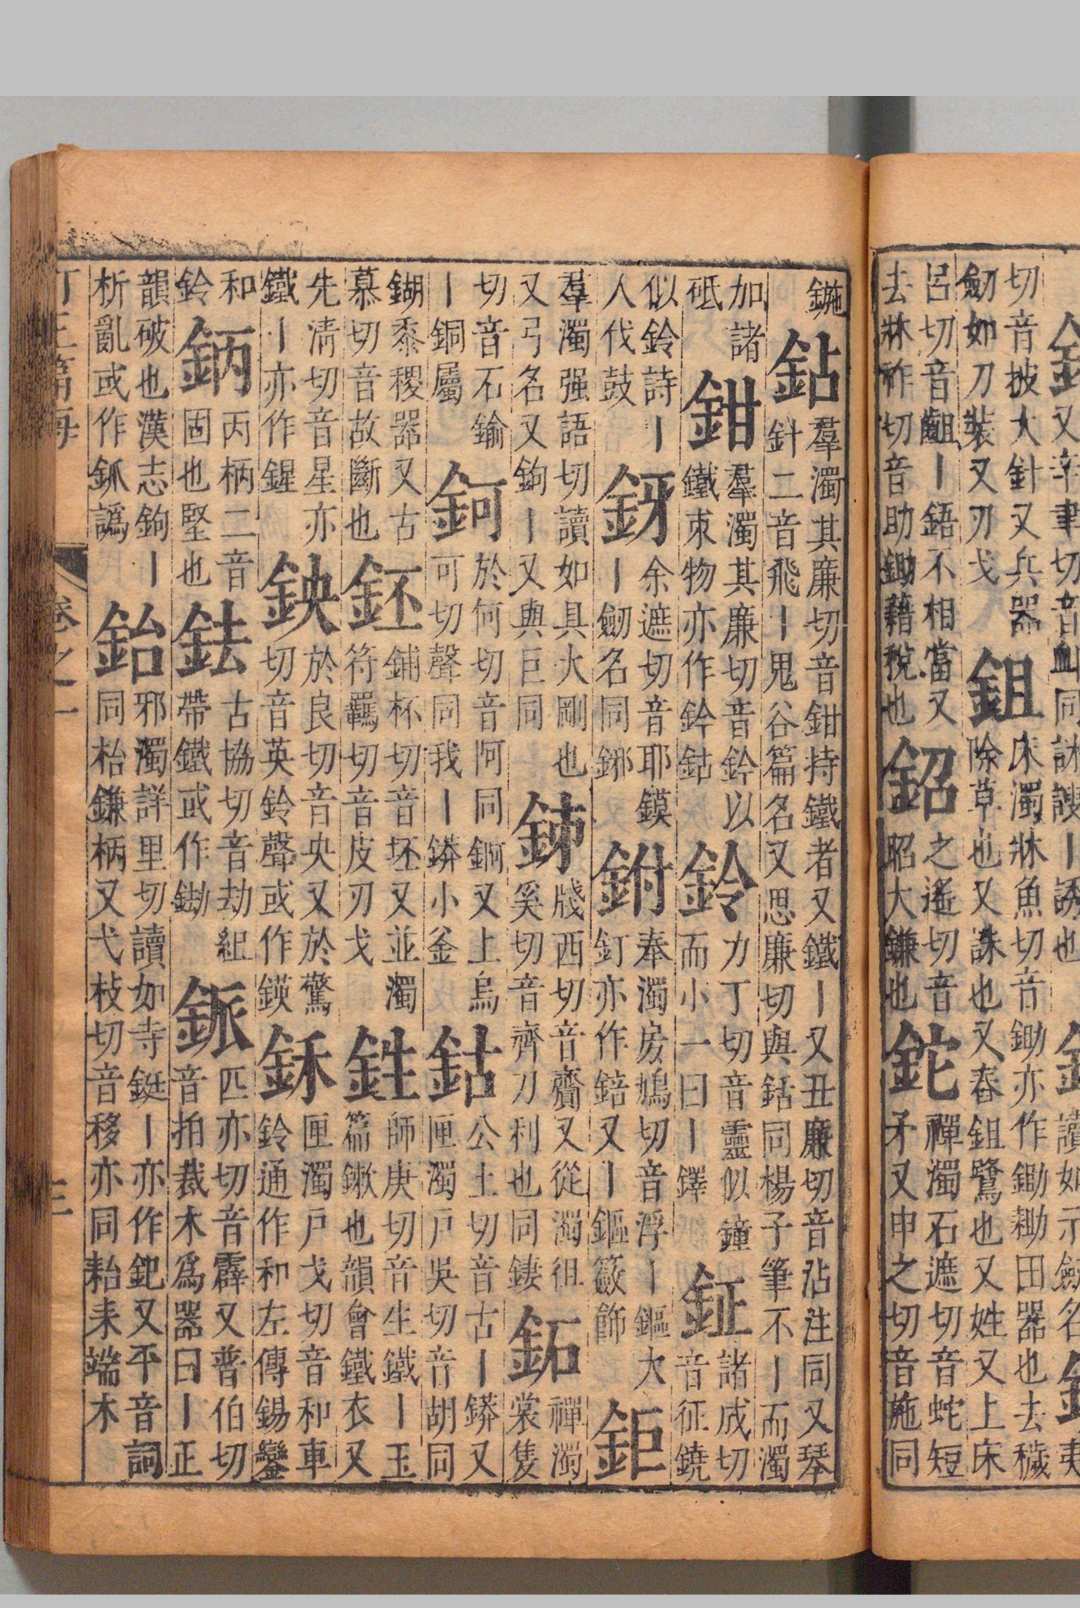 切音披大針又兵器
劒如刀裝又刃戈
鉏
床濁牀魚切音鋤亦作鋤耡田器也去穢
除草也又誅也又春鉏鷺也又姓又上床
呂切音齟丨鋙不相當又
去牀祚切音助鋤藉稅也
鉊
之遙切音
昭大鎌也
鉈
禪濁石遮切音蛇短
矛又申之切音施同
鍦
鉆
羣濁其廉切音鉗持鐵者又鐵丨又丑廉切音沾注同又琴
針二音飛丨鬼谷篇名又思廉切與銛同楊子筆不丨而濁
加諸
砥
鉗
羣濁其廉切音鈐以
鐵束物亦作鈐鈷
鈴
力丁切音靈似鐘
而小一曰丨鐸
鉦
諸成切
音征鐃
似鈴詩丨
人伐鼓
釾
余遮切音耶鏌
丨劒名同鎁
奉濁房鳩切音浮丨鏂大
釘亦作錇又丨鏂簌飾
鉅
羣濁强語切讀如具大剛也
又弓名又鉤丨又與巨同
鈰
牋西切音齎又從濁徂
奚切音齊刀利也同
鉐
禪濁
裳隻
切音石鍮
丨銅屬
鈳
於何切音阿同錒又上烏
可切聲同我丨䥈小釜
鈷
公土切音古丨䥈又
匣濁戶吳切音胡同
鍸黍稷器又古
慕切音故斷也
鉟
鋪杯切音坯又並濁
符羈切音皮刃戈
鉎
師庚切音生鐵丨玉
篇鏉也韻會鐵衣又
先淸切音星亦
鐵丨亦作鍟
鉠
於良切音央又於驚
切音英鈴聲或作鍈
鉌
匣濁戶戈切音和車
鈴通作和左傳錫鑾
和
鈴
鈵
丙柄二音
固也堅也
鉣
古協切音劫紲
帶鐵或作
匹亦切音霹又普伯切
音拍裁木爲器曰丨正
韻破也漢志鉤丨
析亂或作釽譌
鈶
邪濁詳里切讀如寺鋌丨亦作又平音詞
同枱鎌柄又弋枝切音移亦同耜耒端木
卷之一